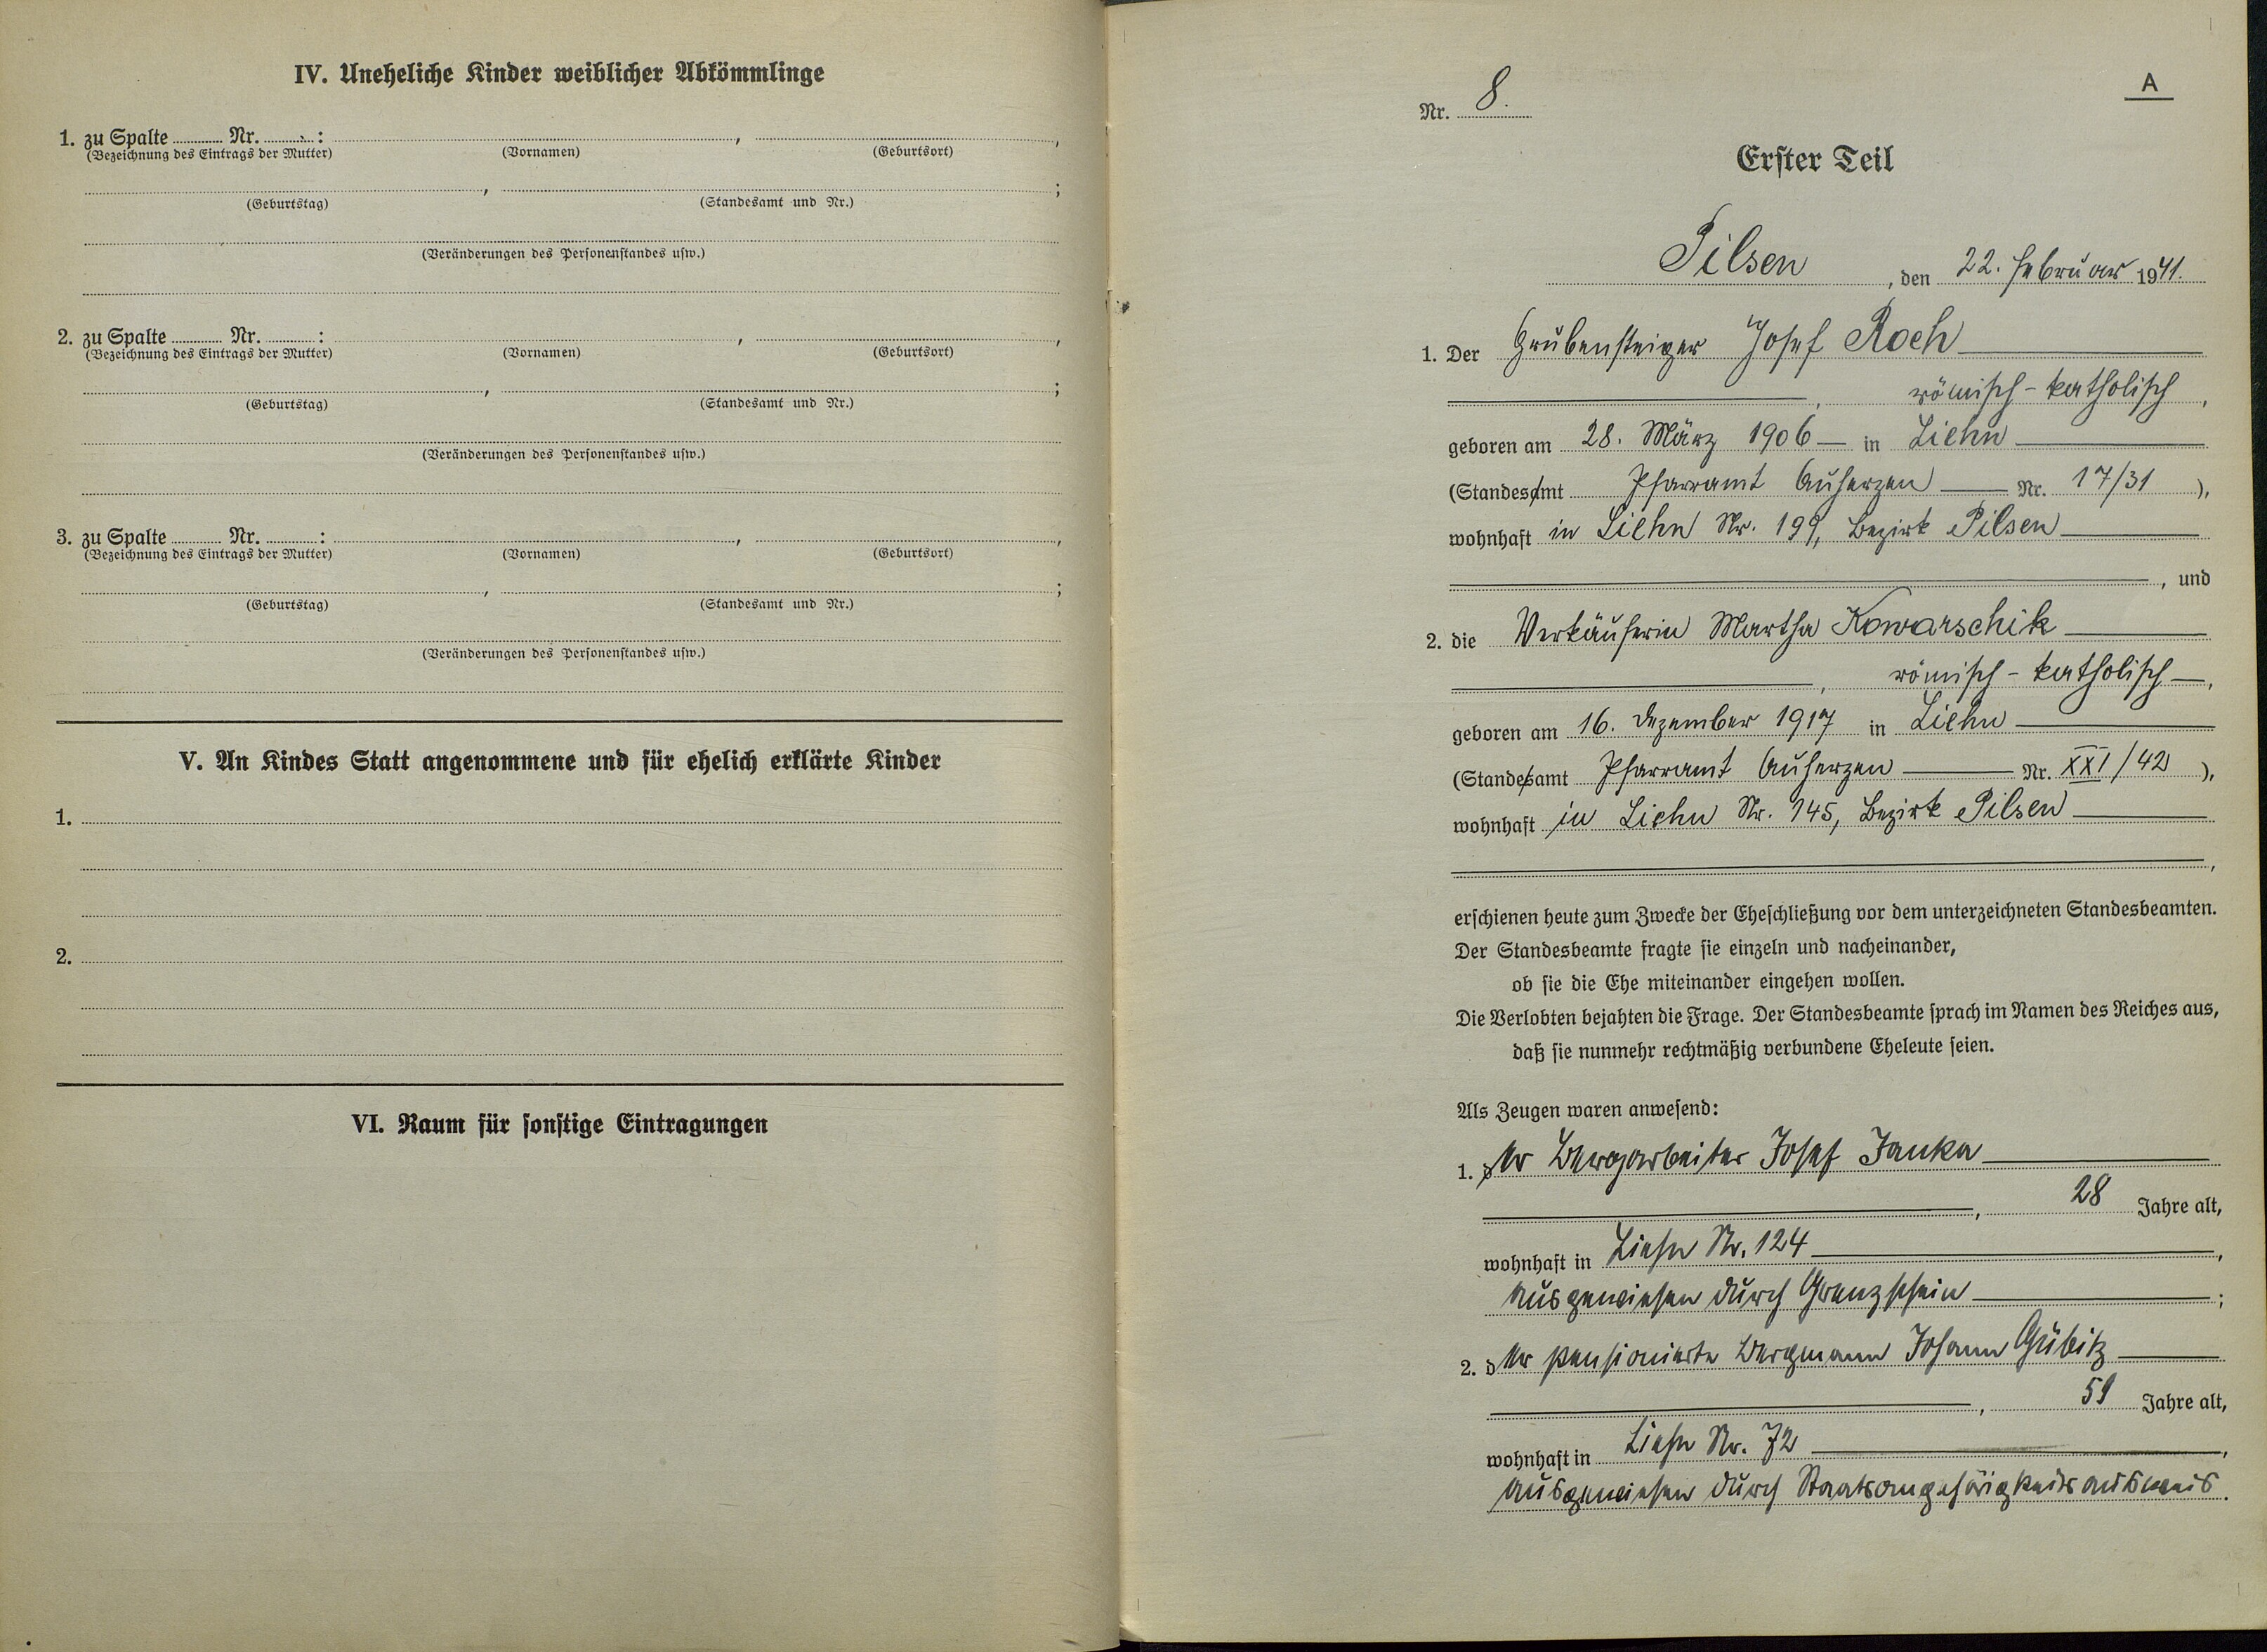 IV. Uneheliche Kinder weiblicher Abkömmlinge
1. zu Spalte ........ Nr. ........ : ........ , ........ ,
(Bezeichnung des Eintrags der Mutter) (Vornamen) (Geburtsort)
........ , ........ ;
(Geburtstag) (Standesamt und Nr.)
(Veränderungen des Personenstandes usw.)
2. zu Spalte ........ Nr. ........ : ........ , ........ ,
(Bezeichnung des Eintrags der Mutter) (Vornamen) (Geburtsort)
........ , ........ ;
(Geburtstag) (Standesamt und Nr.)
(Veränderungen des Personenstandes usw.)
3. zu Spalte ........ Nr. ........ : ........ , ........ ,
(Bezeichnung des Eintrags der Mutter) (Vornamen) (Geburtsort)
........ , ........ ;
(Geburtstag) (Standesamt und Nr.)
(Veränderungen des Personenstandes usw.)
V. An Kindes Statt angenommene und für ehelich erklärte Kinder
1.
2.
VI. Raum für sonstige Eintragungen
A
Nr. 8.
Erster Teil
Pilsen, den 22. Februar 1941.
1. Der Grubensteiger Josef Roch
, römisch-katholisch,
geboren am 28. März 1906 in Liehn
(Standesamt Pfarramt Auherzen Nr. 17/31),
wohnhaft in Liehn Nr. 199, Bezirk Pilsen
, und
2. die Verkäuferin Martha Kowarschik
, römisch-katholisch,
geboren am 16. Dezember 1917 in Liehn
(Standesamt Pfarramt Auherzen Nr. XXI/42),
wohnhaft in Liehn Nr. 145, Bezirk Pilsen
,
erschienen heute zum Zwecke der Eheschließung vor dem unterzeichneten Standesbeamten.
Der Standesbeamte fragte sie einzeln und nacheinander,
ob sie die Ehe miteinander eingehen wollen.
Die Verlobten bejahten die Frage. Der Standesbeamte sprach im Namen des Reiches aus,
daß sie nunmehr rechtmäßig verbundene Eheleute seien.
Als Zeugen waren anwesend:
1. der Bergarbeiter Josef Janka
, 28 Jahre alt,
wohnhaft in Liehn Nr. 124,
ausgewiesen durch Grenzschein;
2. der pensionierte Bergmann Johann Gübitz
, 59 Jahre alt,
wohnhaft in Liehn Nr. 72,
ausgewiesen durch Staatsangehörigkeitsausweis.